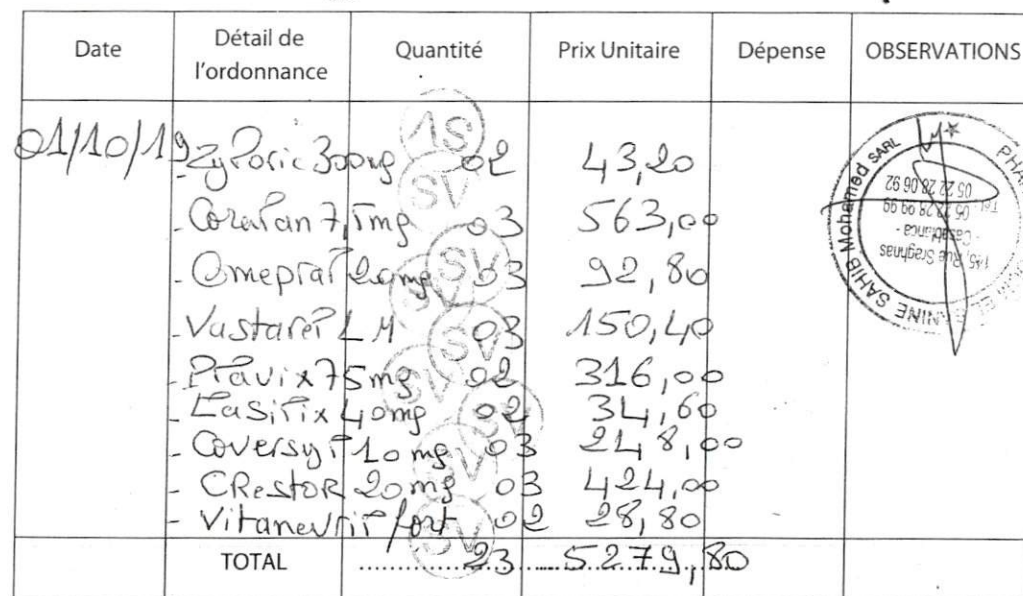 Date Détail de l'ordonnance Quantité Prix Unitaire Dépense OBSERVATIONS
01/10/19
- Zyloric 300mg 02 43,20
- Coralan 7,5mg 03 563,00
- Omepral 20mg 03 92,80
- Vastarel LM 03 150,40
- Plavix 75mg 02 316,00
- Lasilix 40mg 02 34,60
- Coversyl 10mg 03 248,00
- CRestoR 20mg 03 424,00
- Vitanevril fort 02 28,80
TOTAL 23 5279,80
1S
SV
SV
SV
SV
SV
SV
SV
SV
SV
SAHIB Mohamed SARL
145, Rue Sraghnas
- Casablanca -
Tél. 05 22 28 99 99
05 22 28 06 92